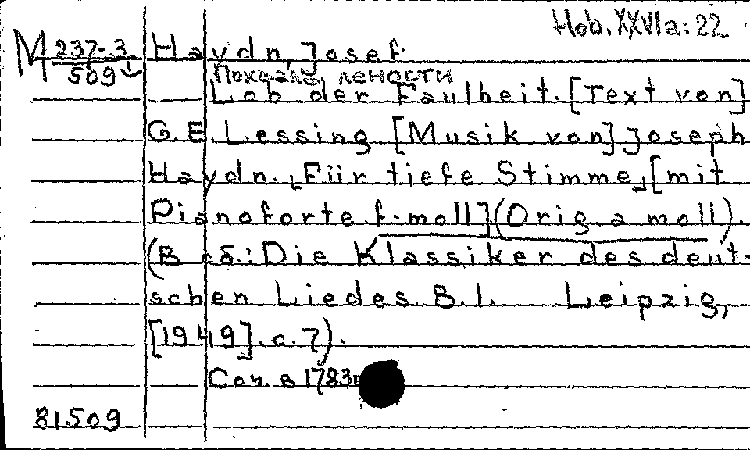 Hob. XXVIa: 22
M 237-3 Haydn, Josef.
509
Похвала лености
Lob der Faulheit. [Text von]
G. E. Lessing [Musik von] Joseph
Haydn. Für tiefe Stimme [mit
Pianoforte f-moll] (Orig. a moll).
(В сб.: Die Klassiker des deut-
schen Liedes. B. 1. Leipzig,
[1949]. с. 7).
Соч. в 1783
81509